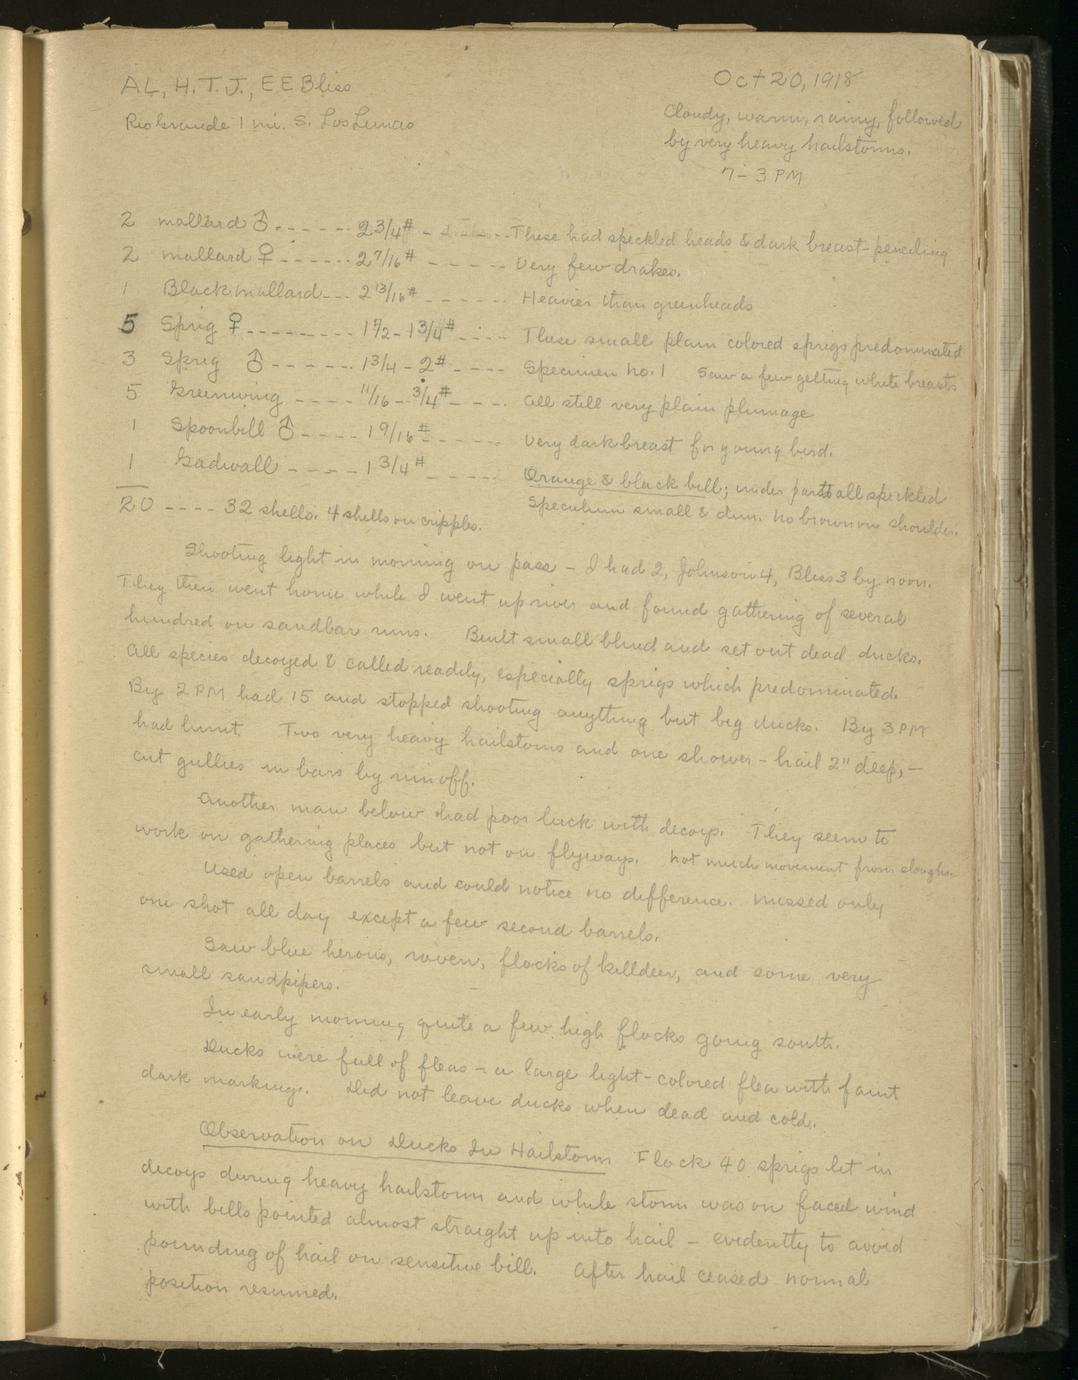 AL, H.T.J., EE Bliss
Oct 20, 1918
Rio Grande 1 mi. S. Los Lunas
Cloudy, warm, rainy, followed
by very heavy hailstorms.
7-3 PM
2 mallard ♂ ------ 2 3/4# ------ These had speckled heads & dark breast-penciling
2 mallard ♀ ------ 2 7/16# ----- Very few drakes.
1 Black mallard --- 2 13/16# ------ Heavier than greenheads
5 Sprig ♀ --------- 1 1/2 - 1 3/4# ----- These small plain colored sprigs predominated
3 Sprig ♂ ----- 1 3/4 - 2# ---- Specimen no. 1 Saw a few getting white breasts
5 Greenwing ---- 11/16 - 3/4# --- all still very plain plumage
1 Spoonbill ♂ ---- 1 9/16# ----- Very dark breast for young bird.
1 Gadwall ----- 1 3/4# ----- Orange & black bill; under parts all speckled
20 ---- 32 shells. 4 shells on cripples.
Speculum small & dun. No brown on shoulder.
Shooting light in morning on pass - I had 2, Johnson 4, Bliss 3 by noon.
They then went home while I went up river and found gathering of several
hundred on sandbar runs. Built small blind and set out dead ducks.
All species decoyed & called readily, especially sprigs which predominated.
By 2 PM had 15 and stopped shooting anything but big ducks. By 3 PM
had limit. Two very heavy hailstorms and one shower - hail 2" deep, -
cut gullies in bars by run off.
Another man below had poor luck with decoys. They seem to
work on gathering places but not on flyways. Not much movement from sloughs.
Used open barrels and could notice no difference. Missed only
one shot all day except a few second barrels.
Saw blue herons, raven, flocks of killdeer, and some very
small sandpipers.
In early morning quite a few high flocks going south.
Ducks were full of fleas - a large light-colored flea with faint
dark markings. Did not leave ducks when dead and cold.
Observation on Ducks In Hailstorm Flock 40 sprigs lit in
decoys during heavy hailstorm and while storm was on faced wind
with bills pointed almost straight up into hail - evidently to avoid
pounding of hail on sensitive bill. After hail ceased normal
position resumed.